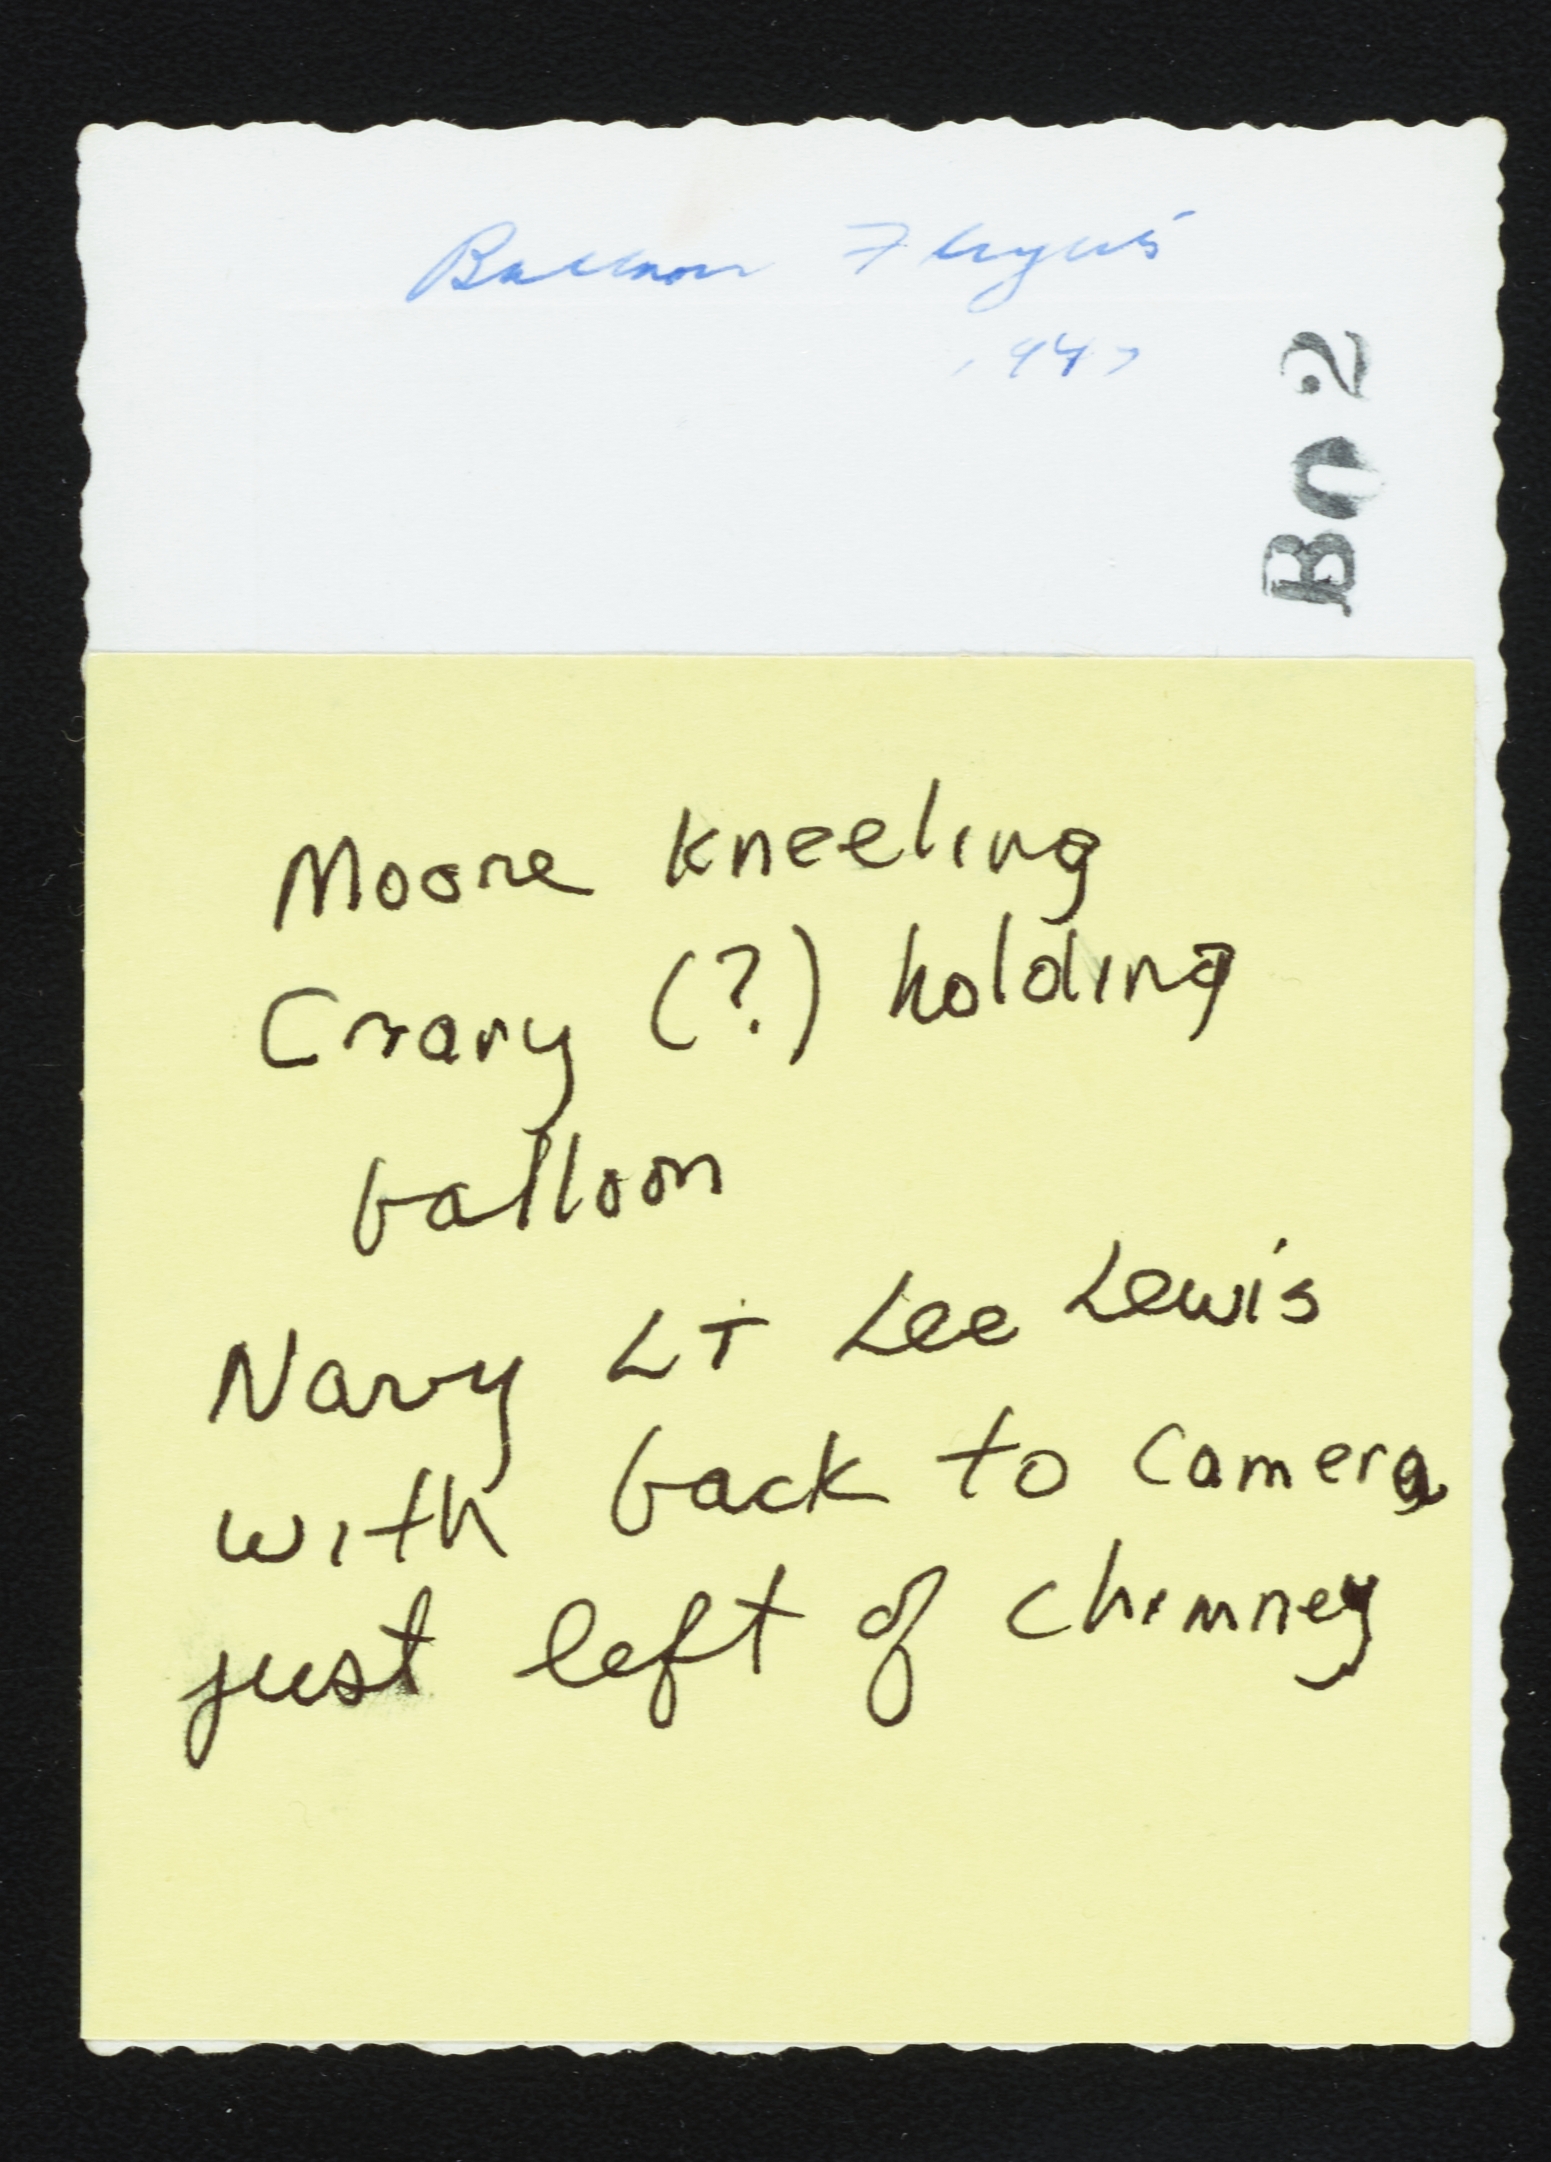 Balloon Flights
1947
B02
Moore kneeling
Crary (?) holding
balloon
Navy LT Lee Lewis
with back to camera
just left of chimney